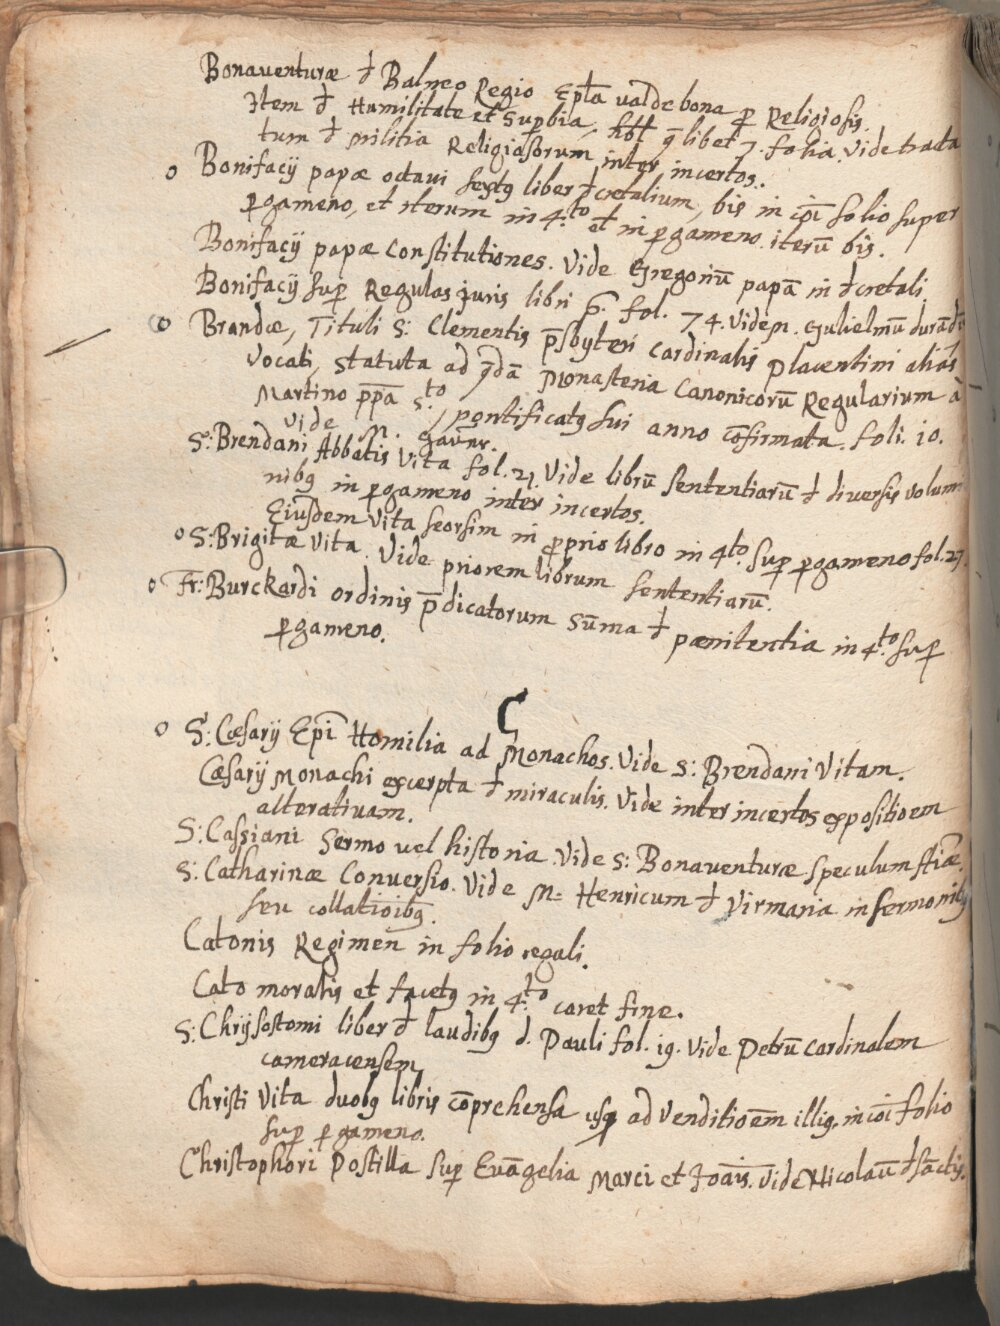 Bonauenturæ đ Balneo Regio Epl̄a ualde bona p̱ Religiosis.
Item đ Humilitate et Sup̱bia, hb̄t q̄libet 7. folia. Vide tracta
tum đ militia Religiosorum inter incertos.
o Bonifacij papæ octaui sextꝯ liber đcretalium, bis in cōi folio super
p̱gameno, et iterum in 4.to et in p̱gameno iterū bis.
Bonifacij papæ Constitutiones. Vide Gregoriū papā in đcretali.
Bonifacij sup̱ Regulas juris libri p̄. fol. 74. Vide m. Gulielmū durādi
o Brandæ, Tituli S: Clementis p̄sbyteri Cardinalis Placentini alias
Vocati, Statuta ad q̄dā Monasteria Canonicorū Regularium à
Martino pp̄a 5.to pontificatꝯ sui anno cōfirmata. foli. 10.
Vide M.
S: Brendani Abbatis Vita fol. 21. Vide librū Sententiarū đ diuersis volumi
nibꝯ in p̱gameno inter incertos.
Eiusdem Vita seorsim in p̱prio libro in 4to. sup̱ p̱gameno fol. 27.
o S: Brigitæ Vita. Vide priorem librum sententiarū.
o Fr: Burckardi ordinis p̄dicatorum Sūma đ pænitentia in 4.to sup̱
p̱gameno.
C
o S: Cæsarij Epī Homilia ad Monachos. Vide S: Brendani Vitam.
Cæsarij Monachi excerpta đ miraculis. Vide inter incertos expositioem
alteratiuam.
S: Cassiani Sermo uel historia. Vide S: Bonauenturæ speculum
S: Catharinæ Conuersio. Vide M: Henricum đ Virmaria in sermonibꝯ
seu collatioībꝯ.
Catonis Regimen in folio regali.
Cato moralis et facetꝯ in 4.to caret fine.
S: Chrysostomi liber đ laudibꝯ d. Pauli fol. 19. Vide Petrū Cardinalem
cameracensem
Christi Vita duobꝯ libris cōprehensa usq̱ ad Venditioēm illiꝯ, in cōi folio
sup̱ p̱gameno.
Christophori Postilla sup̱ Euāgelia Marci et Joāis. Vide Nicolaū